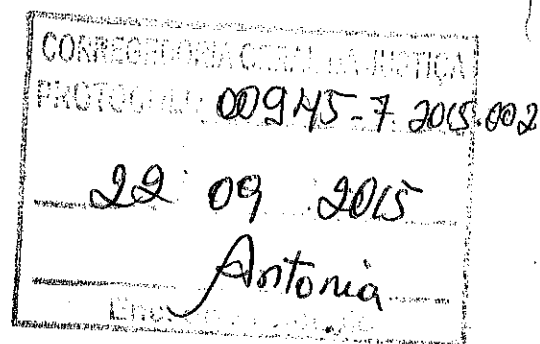 CORREGEDORIA GERAL DA JUSTIÇA
PROTOCOLO 00945-7.2015.002
22 09 2015
Antonia